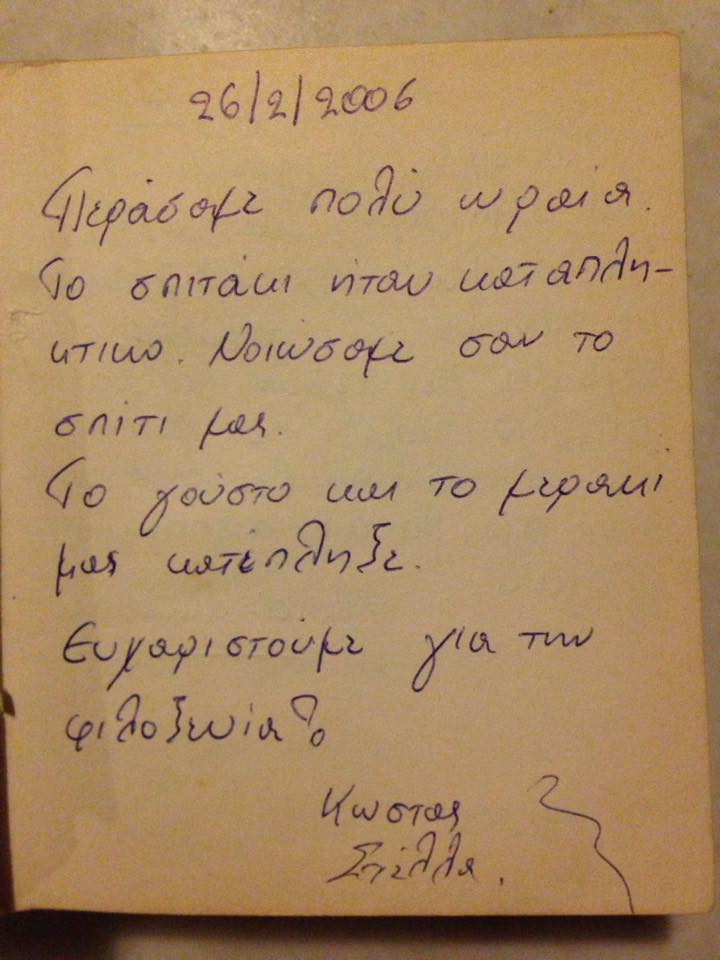 26/2/2006
Περάσαμε πολύ ωραία.
Το σπιτάκι ήταν καταπλη-
κτικο. Νοιώσαμε σαν το
σπίτι μας.
Το γούστο και το μερακι
μας κατέπληξε.
Ευχαριστούμε για την
φιλοξενία!
Κωστας
Στέλλα.